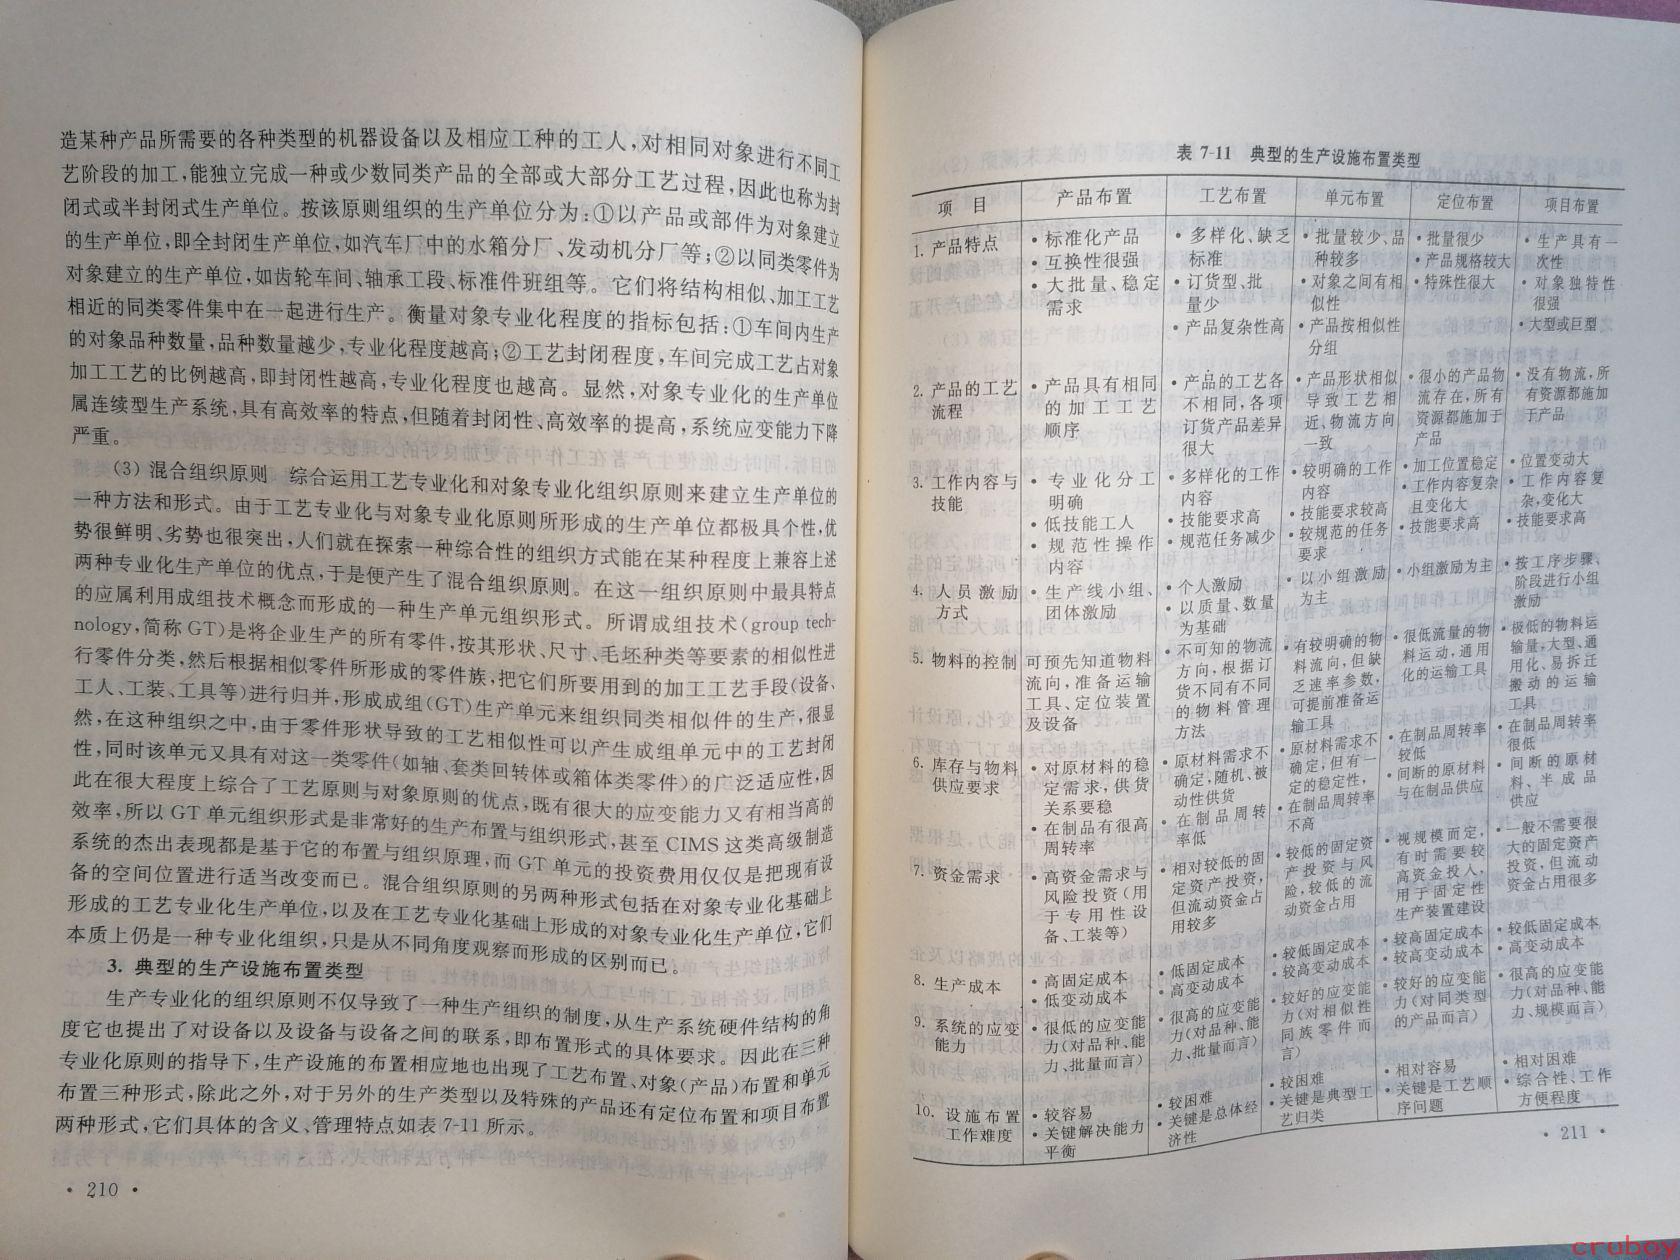 造某种产品所需要的各种类型的机器设备以及相应工种的工人,对相同对象进行不同工
艺阶段的加工,能独立完成一种或少数同类产品的全部或大部分工艺过程,因此也称为封
闭式或半封闭式生产单位。按该原则组织的生产单位分为:①以产品或部件为对象建立
的生产单位,即全封闭生产单位,如汽车厂中的水箱分厂、发动机分厂等;②以同类零件为
对象建立的生产单位,如齿轮车间、轴承工段、标准件班组等。它们将结构相似、加工工艺
相近的同类零件集中在一起进行生产。衡量对象专业化程度的指标包括:①车间内生产
的对象品种数量,品种数量越少,专业化程度越高;②工艺封闭程度,车间完成工艺占对象
加工工艺的比例越高,即封闭性越高,专业化程度也越高。显然,对象专业化的生产单位
属连续型生产系统,具有高效率的特点,但随着封闭性、高效率的提高,系统应变能力下降
严重。
(3) 混合组织原则 综合运用工艺专业化和对象专业化组织原则来建立生产单位的
一种方法和形式。由于工艺专业化与对象专业化原则所形成的生产单位都极具个性,优
势很鲜明、劣势也很突出,人们就在探索一种综合性的组织方式能在某种程度上兼容上述
两种专业化生产单位的优点,于是便产生了混合组织原则。在这一组织原则中最具特点
的应属利用成组技术概念而形成的一种生产单元组织形式。所谓成组技术(group tech-
nology,简称GT)是将企业生产的所有零件,按其形状、尺寸、毛坯种类等要素的相似性进
行零件分类,然后根据相似零件所形成的零件族,把它们所要用到的加工工艺手段(设备、
工人、工装、工具等)进行归并,形成成组(GT)生产单元来组织同类相似件的生产,很显
然,在这种组织之中,由于零件形状导致的工艺相似性可以产生成组单元中的工艺封闭
性,同时该单元又具有对这一类零件(如轴、套类回转体或箱体类零件)的广泛适应性,因
此在很大程度上综合了工艺原则与对象原则的优点,既有很大的应变能力又有相当高的
效率,所以GT单元组织形式是非常好的生产布置与组织形式,甚至CIMS这类高级制造
系统的杰出表现都是基于它的布置与组织原理,而GT单元的投资费用仅仅是把现有设
备的空间位置进行适当改变而已。混合组织原则的另两种形式包括在对象专业化基础上
形成的工艺专业化生产单位,以及在工艺专业化基础上形成的对象专业化生产单位,它们
本质上仍是一种专业化组织,只是从不同角度观察而形成的区别而已。
3. 典型的生产设施布置类型
生产专业化的组织原则不仅导致了一种生产组织的制度,从生产系统硬件结构的角
度它也提出了对设备以及设备与设备之间的联系,即布置形式的具体要求。因此在三种
专业化原则的指导下,生产设施的布置相应地也出现了工艺布置、对象(产品)布置和单元
布置三种形式,除此之外,对于另外的生产类型以及特殊的产品还有定位布置和项目布置
两种形式,它们具体的含义、管理特点如表7-11所示。
· 210 ·
表 7-11 典型的生产设施布置类型
项 目 产品布置 工艺布置 单元布置 定位布置 项目布置
1. 产品特点
· 标准化产品
· 互换性很强
· 大批量、稳定
需求
· 多样化、缺乏
标准
· 订货型,批
量少
· 产品复杂性高
· 批量较少、品
种较多
· 对象之间有相
似性
· 产品按相似性
分组
· 批量很少
· 产品规格较大
· 特殊性很大
· 生产具有一
次性
· 对象独特性
很强
· 大型或巨型
2. 产品的工艺
流程
· 产品具有相同
的加工工艺
顺序
· 产品的工艺各
不相同,各项
订货产品差异
很大
· 产品形状相似
导致工艺相
近、物流方向
一致
· 很小的产品物
流存在,所有
资源都施加于
产品
· 没有物流,所
有资源都施加
于产品
3. 工作内容与
技能
· 专业化分工
明确
· 低技能工人
· 规范性操作
内容
· 多样化的工作
内容
· 技能要求高
· 规范任务减少
· 较明确的工作
内容
· 技能要求较高
· 较规范的任务
要求
· 加工位置稳定
· 工作内容复杂
且变化大
· 技能要求高
· 位置变动大
· 工作内容复
杂,变化大
· 技能要求高
4. 人员激励
方式
· 生产线小组、
团体激励
· 个人激励
· 以质量、数量
为基础
· 以小组激励
为主
· 小组激励为主
· 按工序步骤、
阶段进行小组
激励
5. 物料的控制
可预先知道物料
流向,准备运输
工具、定位装置
及设备
· 不可知的物流
方向,根据订
货不同有不同
的物料管理
方法
· 有较明确的物
料流向,但缺
乏速率参数,
可提前准备运
输工具
· 很低流量的物
料运动,通用
化的运输工具
· 极低的物料运
输量,大型、通
用化、易拆迁
搬动的运输
工具
6. 库存与物料
供应要求
· 对原材料的稳
定需求,供货
关系要稳
· 在制品有很高
周转率
· 原材料需求不
确定,随机、被
动性供货
· 在制品周转
率低
· 原材料需求不
确定,但有一
定的稳定性,
· 在制品周转率
不高
· 在制品周转率
较低
· 间断的原材料
与在制品供应
· 在制品周转率
很低
· 间断的原材
料、半成品
供应
7. 资金需求
· 高资金需求与
风险投资(用
于专用性设
备、工装等)
· 相对较低的固
定资产投资,
但流动资金占
用较多
· 较低的固定资
产投资与风
险,较低的流
动资金占用
· 视规模而定,
有时需要较
高资金投入,
用于固定性
生产装置建设
· 一般不需要很
大的固定资产
投资,但流动
资金占用很多
8. 生产成本
· 高固定成本
· 低变动成本
· 低固定成本
· 高变动成本
· 较低固定成本
· 较高变动成本
· 较高固定成本
· 较高变动成本
· 较低固定成本
· 高变动成本
9. 系统的应变
能力
· 很低的应变能
力(对品种、能
力、批量而言)
· 很高的应变能
力(对品种、能
力、批量而言)
· 较好的应变能
力(对相似性
同族零件而
言)
· 较好的应变能
力(对同类型
的产品而言)
· 很高的应变能
力(对品种、能
力、规模而言)
10. 设施布置
工作难度
· 较容易
· 关键解决能力
平衡
· 较困难
· 关键是总体经
济性
· 较困难
· 关键是典型工
艺归类
· 相对容易
· 关键是工艺顺
序问题
· 相对困难
· 综合性、工作
方便程度
· 211 ·
cruboy